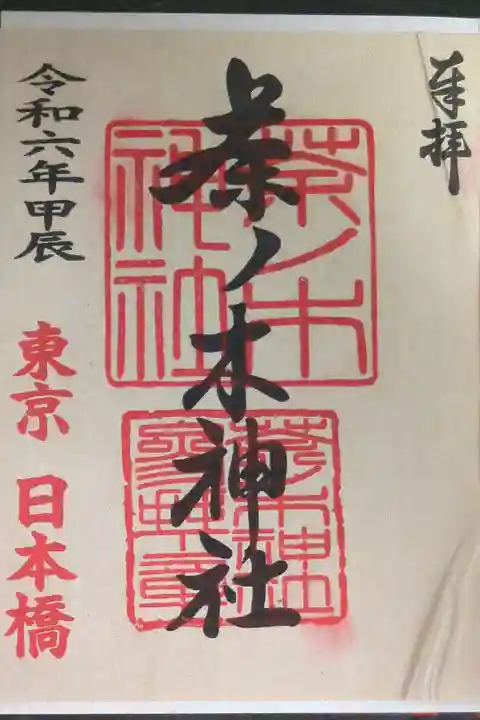 奉拝
茶ノ木神社
茶ノ木
神社
茶ノ木神社
参拝章
令和六年甲辰
東京 日本橋